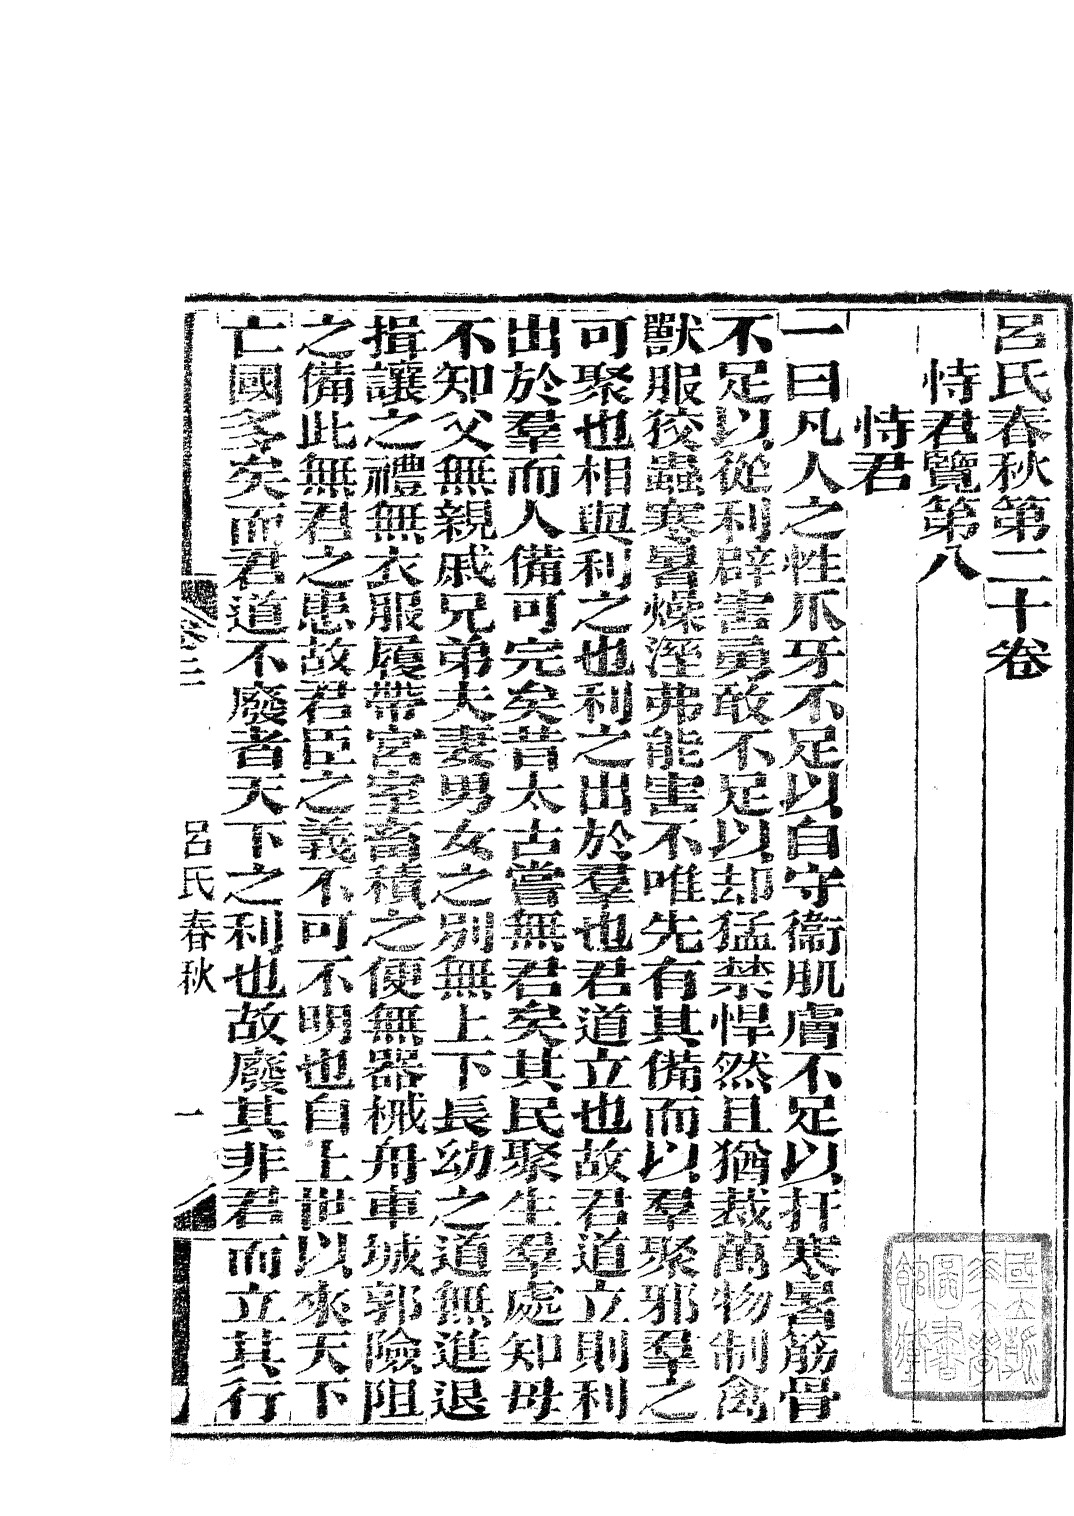 呂氏春秋第二十卷
恃君覽第八
恃君
一曰凡人之性爪牙不足以自守衞肌膚不足以扞寒暑筋骨
不足以從利辟害勇敢不足以却猛禁悍然且猶裁萬物制禽
獸服狡蟲寒暑燥溼弗能害不唯先有其備而以羣聚邪羣之
可聚也相與利之也利之出於羣也君道立也故君道立則利
出於羣而人備可完矣昔太古嘗無君矣其民聚生羣處知母
不知父無親戚兄弟夫妻男女之別無上下長幼之道無進退
揖讓之禮無衣服履帶宮室畜積之便無器械舟車城郭險阻
之備此無君之患故君臣之義不可不明也自上世以來天下
亡國多矣而君道不廢者天下之利也故廢其非君而立其行
卷二
呂氏春秋
一